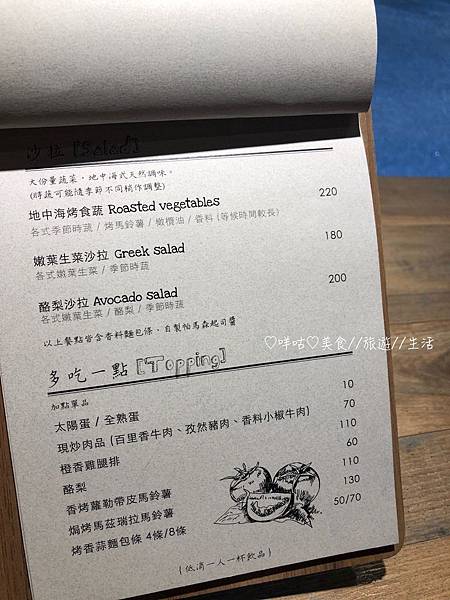 沙拉 [Salad]
大份量蔬菜，地中海式天然調味。
(時蔬可能隨季節不同稍作調整)
地中海烤食蔬 Roasted vegetables 220
各式季節時蔬 / 烤馬鈴薯 / 橄欖油 / 香料 (等候時間較長)
嫩葉生菜沙拉 Greek salad 180
各式嫩葉生菜 / 季節時蔬
酪梨沙拉 Avocado salad 200
各式嫩葉生菜 / 酪梨 / 季節時蔬
以上餐點皆含香料麵包條、自製帕馬森起司醬
♡咩咕♡美食//旅遊//生活
多吃一點 [Topping]
加點單品
太陽蛋 / 全熟蛋 10
現炒肉品 (百里香牛肉、孜然豬肉、香料小椒牛肉) 70
橙香雞腿排 110
酪梨 60
香烤蘿勒帶皮馬鈴薯 110
焗烤馬茲瑞拉馬鈴薯 130
烤香蒜麵包條 4條/8條 50/70
(低消一人一杯飲品)